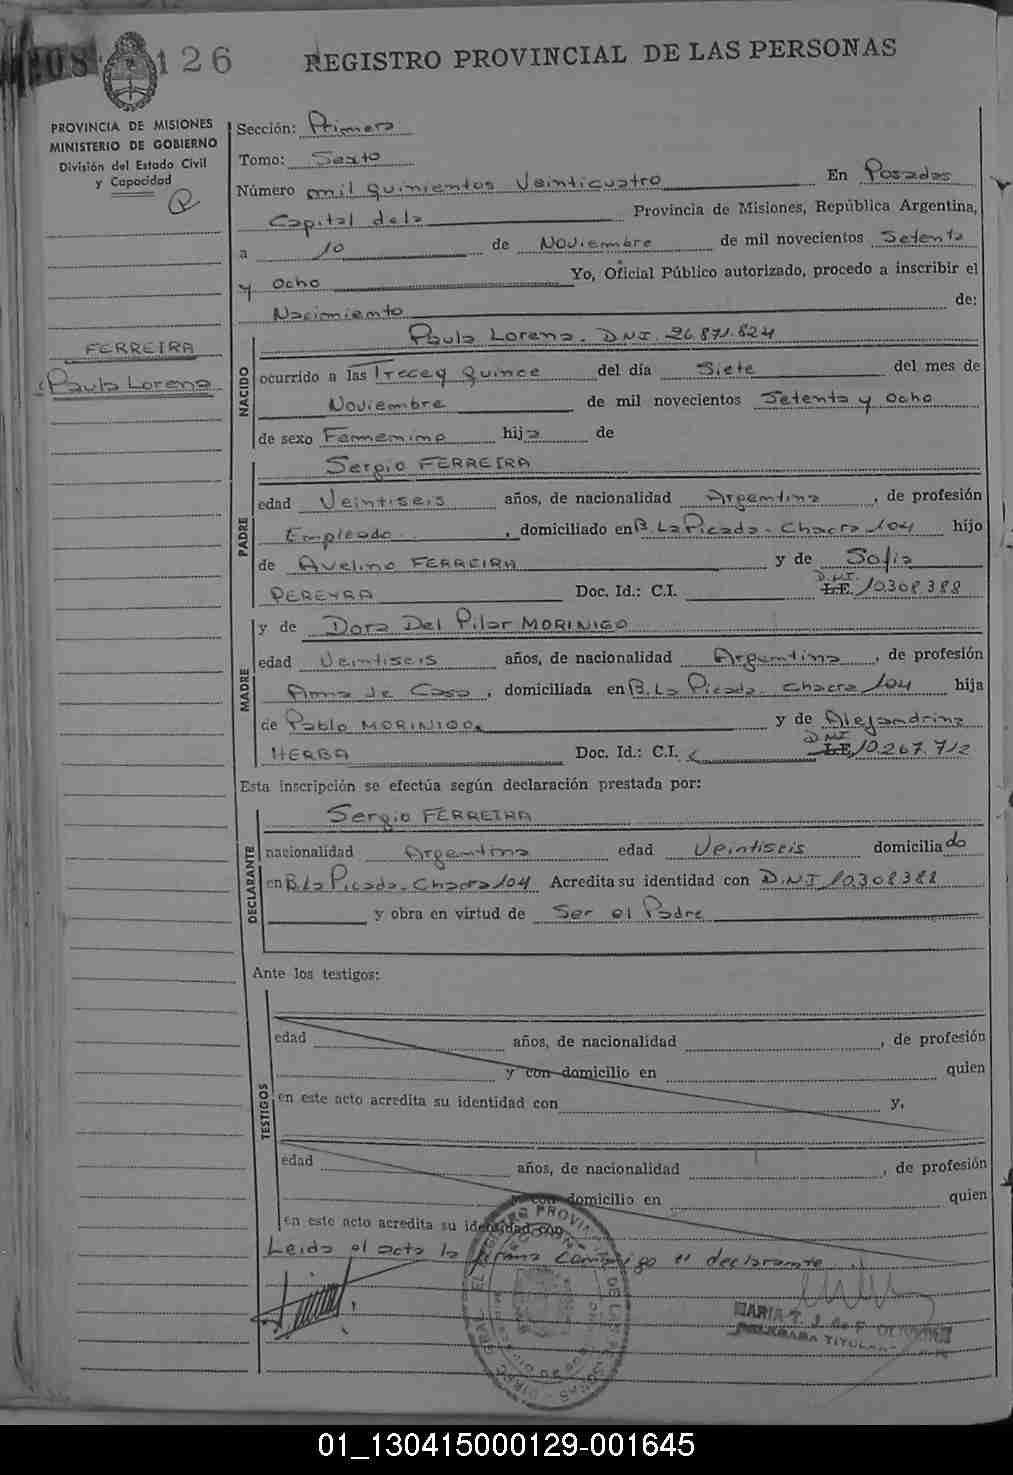 126
REGISTRO PROVINCIAL DE LAS PERSONAS
PROVINCIA DE MISIONES
MINISTERIO DE GOBIERNO
División del Estado Civil
y Capacidad
FERREIRA
Paula Lorena
Sección: Primera
Tomo: Sexto
Número mil quinientos Veinticuatro En Posadas
Capital dela Provincia de Misiones, República Argentina,
a 10 de Noviembre de mil novecientos Setenta
y Ocho Yo, Oficial Público autorizado, procedo a inscribir el
Nacimiento de:
NACIDO
Paula Lorena. D.N.I. 26.871.824
ocurrido a las Trece y Quince del día Siete del mes de
Noviembre de mil novecientos Setenta y Ocho
de sexo Femenino hija de
PADRE
Sergio FERREIRA
edad Veintiseis años, de nacionalidad Argentina, de profesión
Empleado, domiciliado en B. La Picada. Chacra 104 hijo
de Avelino FERREIRA y de Sofia
PEREYRA Doc. Id.: C.I. L.E. D.N.I. 10.308.388
MADRE
y de Dora Del Pilar MORINIGO
edad Veintiseis años, de nacionalidad Argentina, de profesión
Ama de Casa, domiciliada en B. La Picada. Chacra 104 hija
de Pablo MORINIGO y de Alejandrina
HERBA Doc. Id.: C.I. L.E. D.N.I. 10.267.712
Esta inscripción se efectúa según declaración prestada por:
DECLARANTE
Sergio FERREIRA
nacionalidad Argentina edad Veintiseis domiciliado
en B. La Picada. Chacra 104 Acredita su identidad con D.N.I 10.308388
y obra en virtud de Ser el Padre
Ante los testigos:
TESTIGOS
edad años, de nacionalidad, de profesión
y con domicilio en quien
en este acto acredita su identidad con y,
edad años, de nacionalidad, de profesión
y con domicilio en quien
en este acto acredita su identidad con
Leida el acta la firma conmigo el declarante
MARIA T. J. de F.
DELEGADA TITULAR
01_130415000129-001645